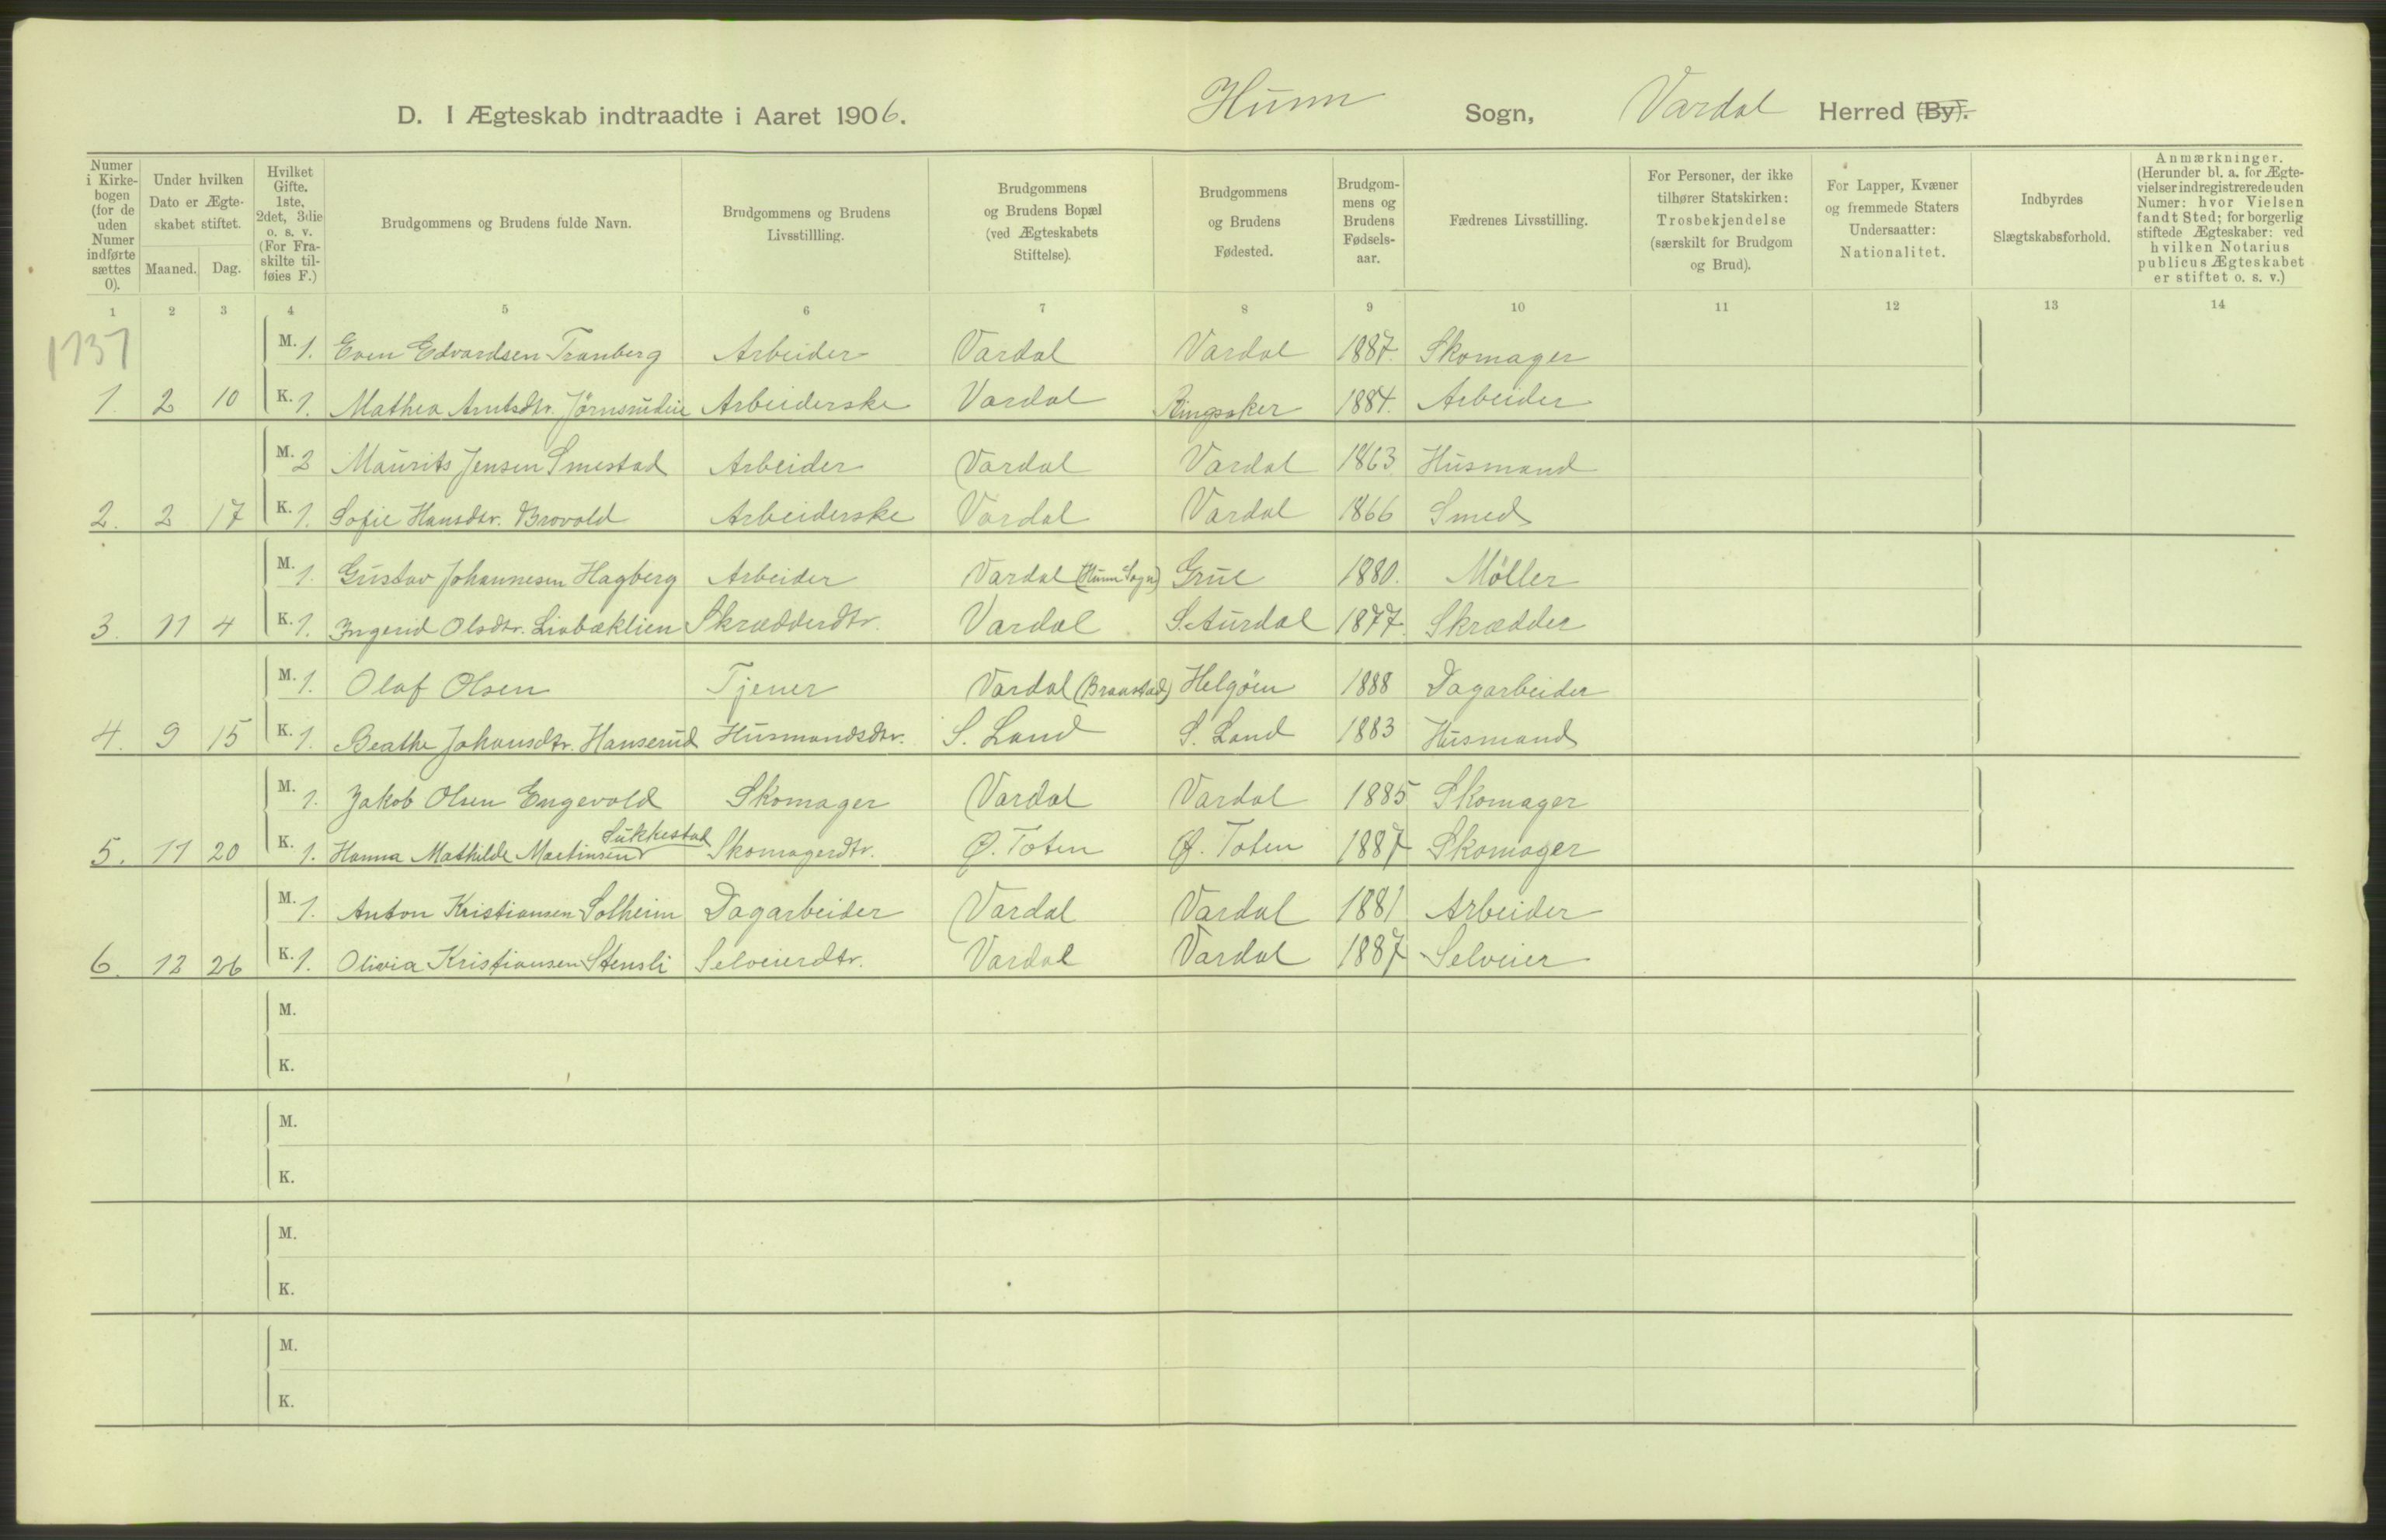 D. I Ægteskab indtraadte i Aaret 1906. Hunn Sogn, Vardal Herred (By).
Numer i Kirkebogen (for de uden Numer indførte sættes 0).
Under hvilken Dato er Ægteskabet stiftet.
Maaned. Dag.
Hvilket Gifte. 1ste, 2det, 3die o. s. v. (For Fraskilte tilføies F.)
Brudgommens og Brudens fulde Navn.
Brudgommens og Brudens Livsstillling.
Brudgommens og Brudens Bopæl (ved Ægteskabets Stiftelse).
Brudgommens og Brudens Fødested.
Brudgommens og Brudens Fødselsaar.
Fædrenes Livsstilling.
For Personer, der ikke tilhører Statskirken: Trosbekjendelse (særskilt for Brudgom og Brud).
For Lapper, Kvæner og fremmede Staters Undersaatter: Nationalitet.
Indbyrdes Slægtskabsforhold.
Anmærkninger. (Herunder bl. a. for Ægtevielser indregistrerede uden Numer: hvor Vielsen fandt Sted; for borgerlig stiftede Ægteskaber: ved hvilken Notarius publicus Ægteskabet er stiftet o. s. v.)
1 2 3 4 5 6 7 8 9 10 11 12 13 14
1737
M. 1. Even Edvardsen Tranberg Arbeider Vardal Vardal 1887. Skomager
1. 2 10 K. 1. Mathea Arntsdtr. Jørnsudeie Arbeiderske Vardal Ringsaker 1884. Arbeider
M. 2 Maurits Jensen Smestad Arbeider Vardal Vardal 1863 Husmand
2. 2 17 K. 1. Sofie Hansdtr. Brovold Arbeiderske Vardal Vardal 1866 Smed
M. 1. Gustav Johannesen Hagberg Arbeider Vardal (Hunn Sogn) Grue 1880. Møller
3. 11 4 K. 1. Ingerid Olsdtr. Liabæklien Skrædderdtr. Vardal S. Aurdal 1877. Skrædder
M. 1. Olaf Olsen Tjener Vardal (Braastad) Helgøen 1888 Dagarbeider
4. 9 15 K. 1. Beathe Johansdtr. Hanserud Husmandsdtr. S. Land S. Land 1883 Husmand
M. 1. Jakob Olsen Engevold Skomager Vardal Vardal 1885 Skomager
5. 11 20 K. 1. Hanna Mathilde Martinsen Sukkestad Skomagerdtr. Ø. Toten Ø. Toten 1887 Skomager
M. 1. Anton Kristiansen Solheim Dagarbeider Vardal Vardal 1881 Arbeider
6. 12 26 K. 1. Olivia Kristiansen Stensli Selveierdtr. Vardal Vardal 1887 Selveier
M.
K.
M.
K.
M.
K.
M.
K.